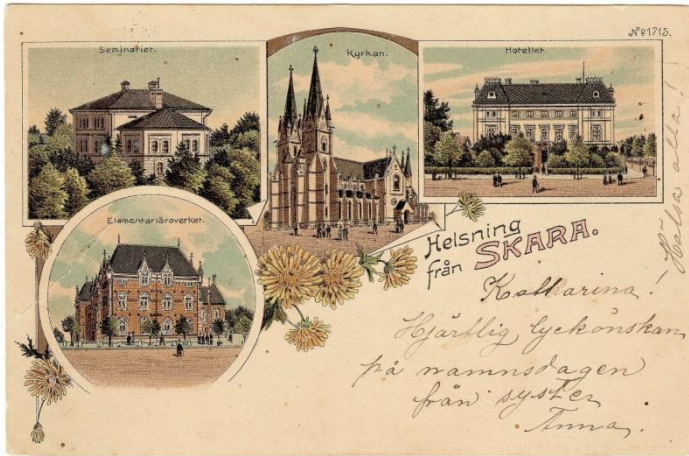 Nº 1715.
Seminariet.
Kyrkan.
Hotellet.
Elementarläroverket.
Helsning
från SKARA.
Katharina!
Hjärtlig lyckönskan
på namnsdagen
från syster
Anna.
Hälsa alla!